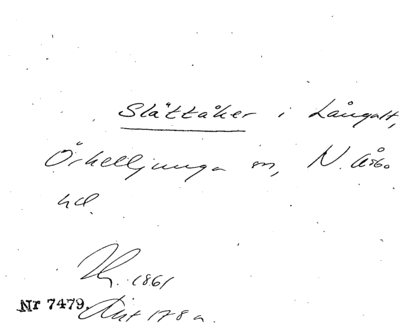 Slättåker i Långalt,
Örkelljunga sn, N. Åsbo
hd.
1861
Nr 7479. Akt 178 a.